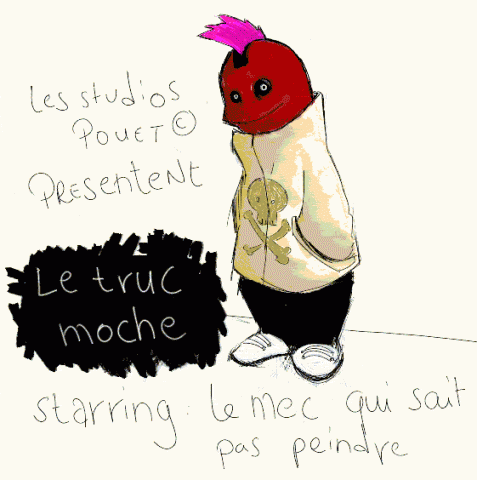 Les studios
POUET ©
PRESENTENT
Le truc
moche
starring : le mec qui sait
pas peindre